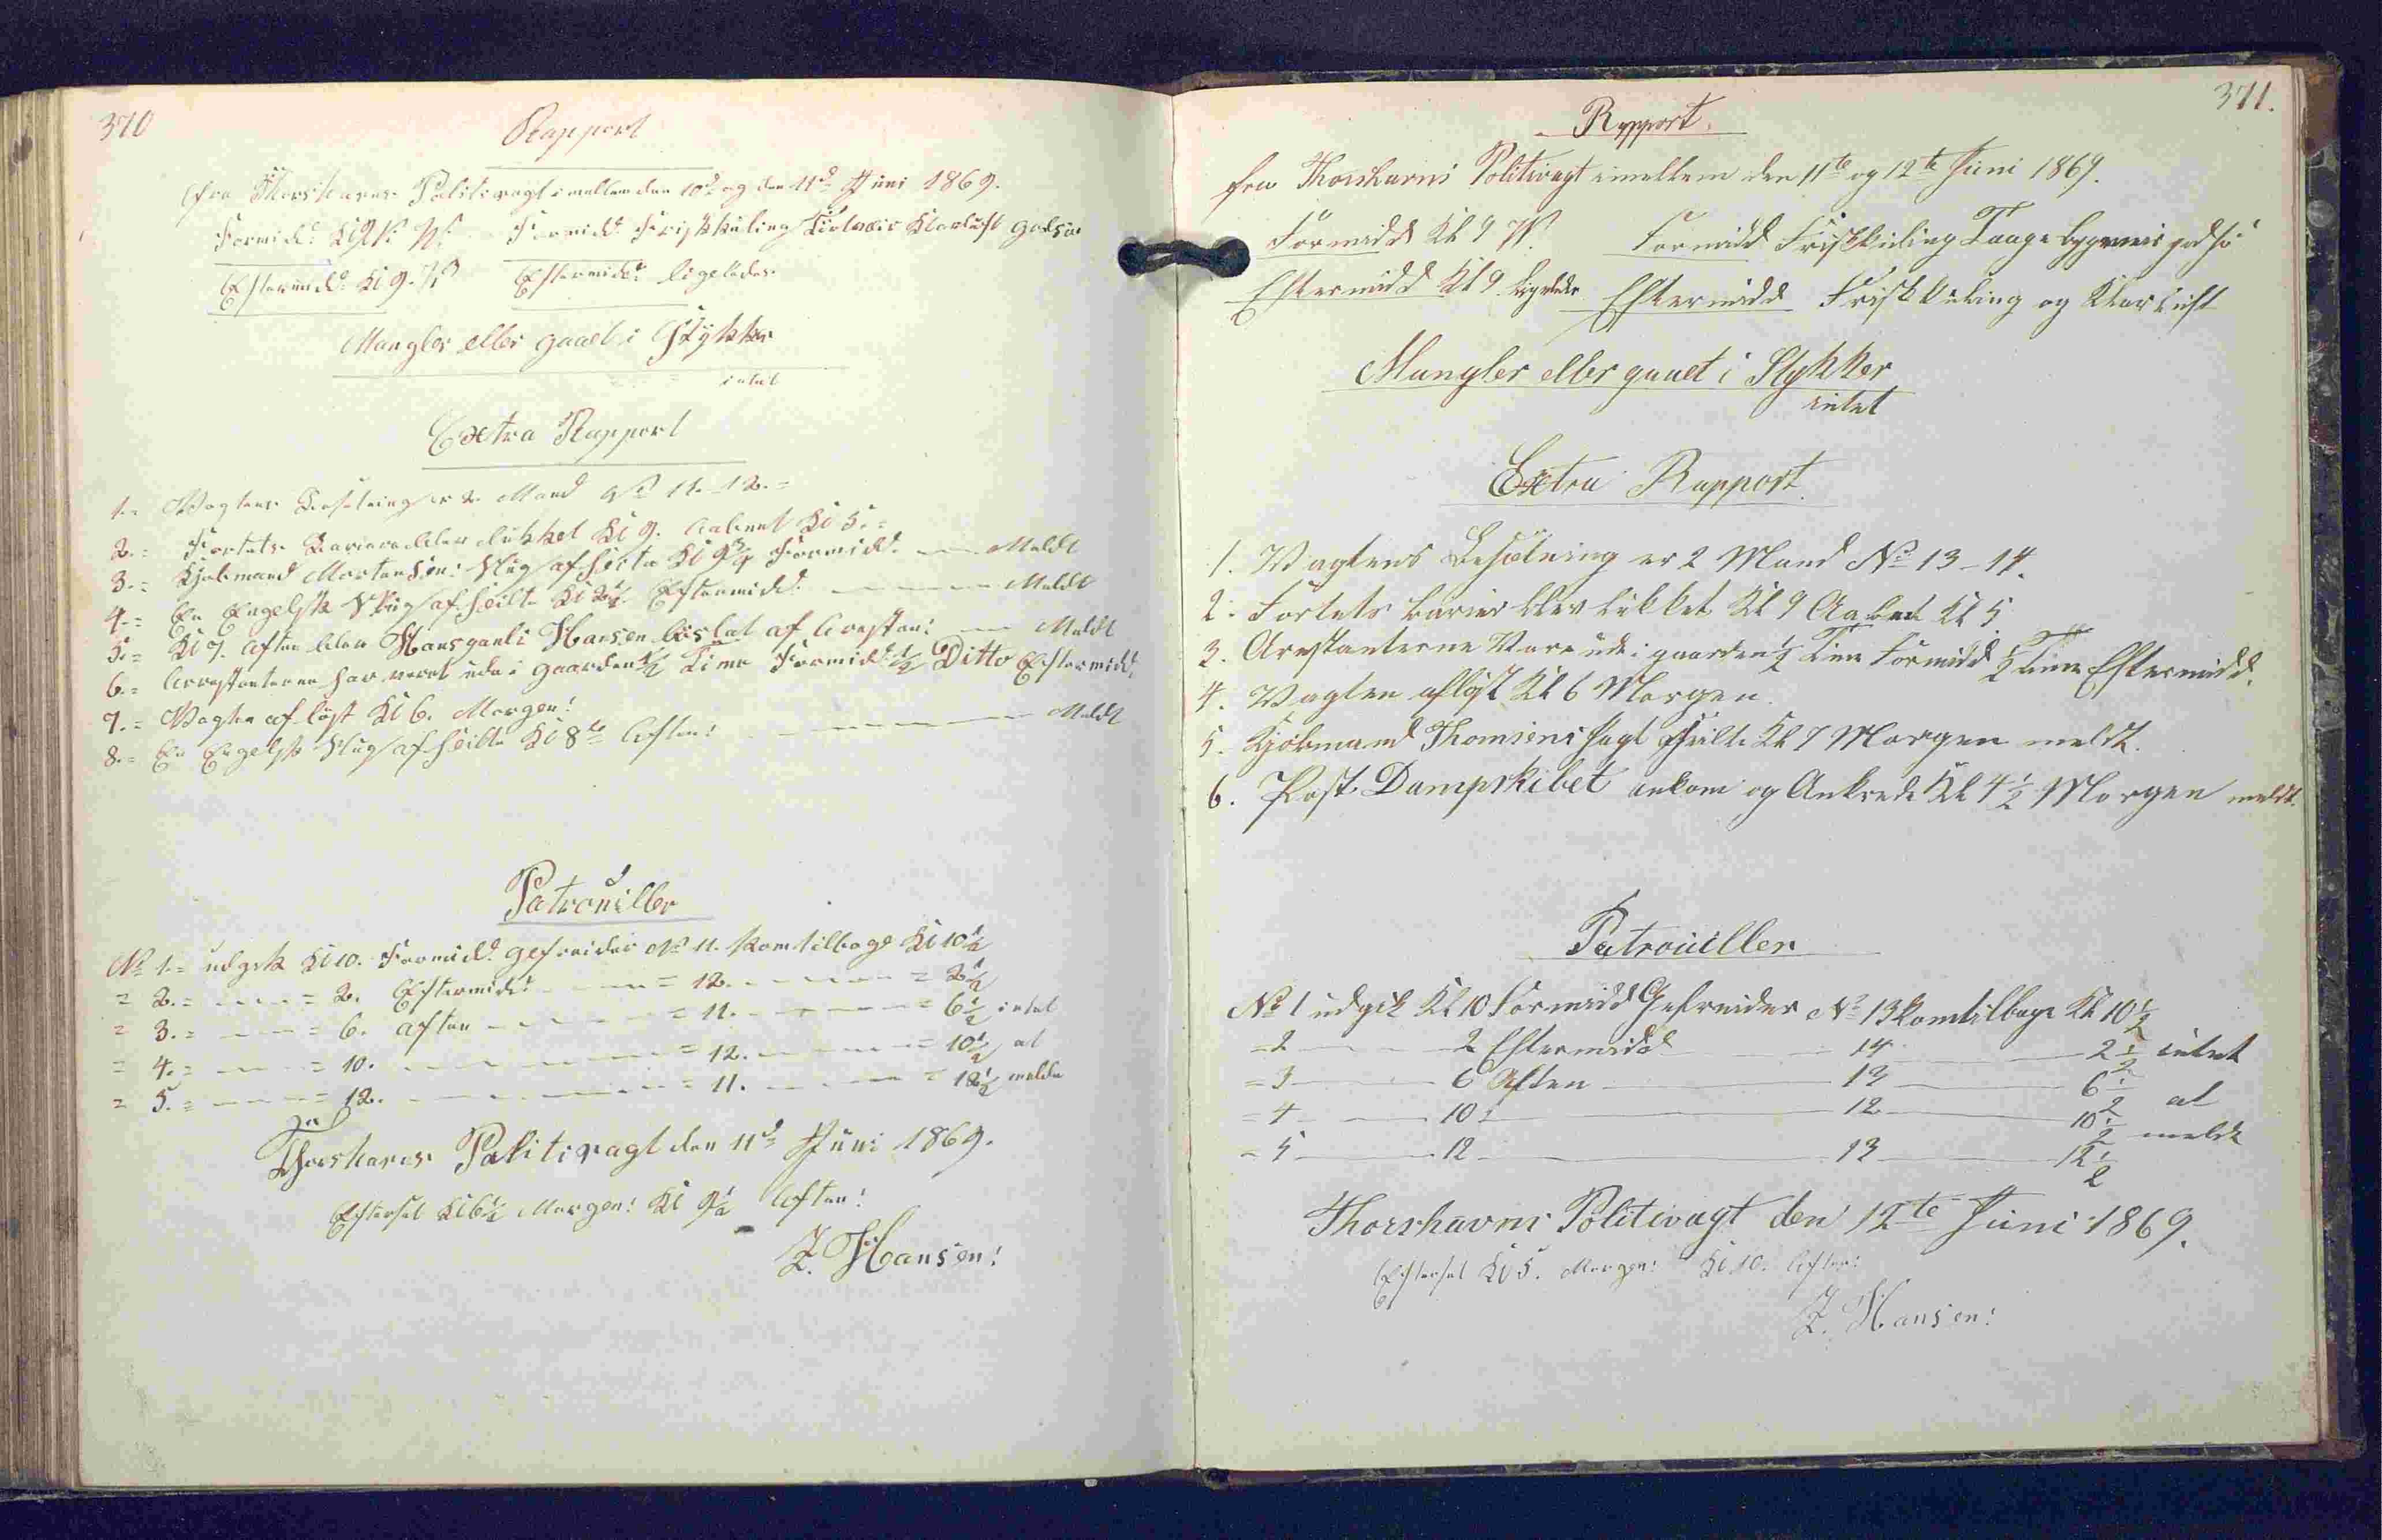 370
Rapport
fra Thorshavns Politivagt imellem den 10d og den 11d Juni 1869.
Formidd: Kl 9 V. N. Formidd: Friskkuling Klarluft god
Eftermidd: Kl 9. N Eftermidd: ligeledes.
Mangler eller gaaet i Stykker
intet
Extra Rapport
1.= Vagtens Besætning er 2 Mand No 11.-12.=
2.= Fortets Barier blev lukket Kl 9. Aabnet Kl 5.=
3.= Kjøbmand Mortensens Slup afseilte Kl 9 3/4 Formidd. Meldt
4.= En Engelsk Slup afseilte Kl 2 1/2 Eftermidd. Meldt
5.= Kl 7. Aften blev Hans pauli Hansen løslat af Aresten: Meldt
6.= Arrestanterne har veret ude i gaarden 1/2 Time Formidd: 1/2 Ditto Eftermidd.
7.= Vagten afløst Kl 6. Morgen!
8.= En Engelsk Slup afseilte Kl 8 Aften! Meldt
Patrouiller
No 1.= udgik Kl 10. Formidd: Gefreider No 11. Kom tilbage Kl 10 1/2
= 2.= = 2. Eftermidd: = 12. = 2 1/2
= 3.= = 6. aften = 11. = 6 1/2 intet
= 4.= = 10. = 12. = 10 1/2 at
= 5.= = 12. = 11. = 12 1/2 melde
Thorshavns Politivagt den 11d Juni 1869.
Efterset Kl 6 1/2 Morgen! Kl 9 1/2 Aften!
Z. Hansen!
371.
Rapport.
fra Thorshavns Politivagt imellem den 11te og 12te Juni 1869.
Formidd Kl 9 V. Formidd Friskkuling Taage bygeveir god sø
Eftermidd Kl 9 ligeledes Eftermidd Frisk Kuling og Klar Luft
Mangler eller gaaet i Stykker
intet
Extra Rapport.
1. Vagtens Besætning er 2 Mand No 13-14.
2. Fortets barier blev lukket Kl 9 Aabnet Kl 5
3. Arestanterne Vare ude i gaarden 1/2 Time Formidd 1/2 Time Eftermidd.
4. Vagten afløst Kl 6 Morgen.
5. Kjøbmand Thomsens Jagt Seilte Kl 7 Morgen meldt.
6. Post Dampskibet ankom og Ankrede Kl 4 1/2 Morgen meldt.
Patrouiller
No 1 udgik Kl 10 Formidd Gefreider No 13 kom tilbage Kl 10 1/2
=2 2 Eftermidd 14 2 1/2 intet
=3 6 Aften 13 6 1/2 at
=4 10 12 10 1/2 melde
=5 12 13 12 1/2
Thorshavns Politivagt den 12te Juni 1869.
Efterset Kl 5. Morgen! Kl 10. Aften!
Z. Hansen!